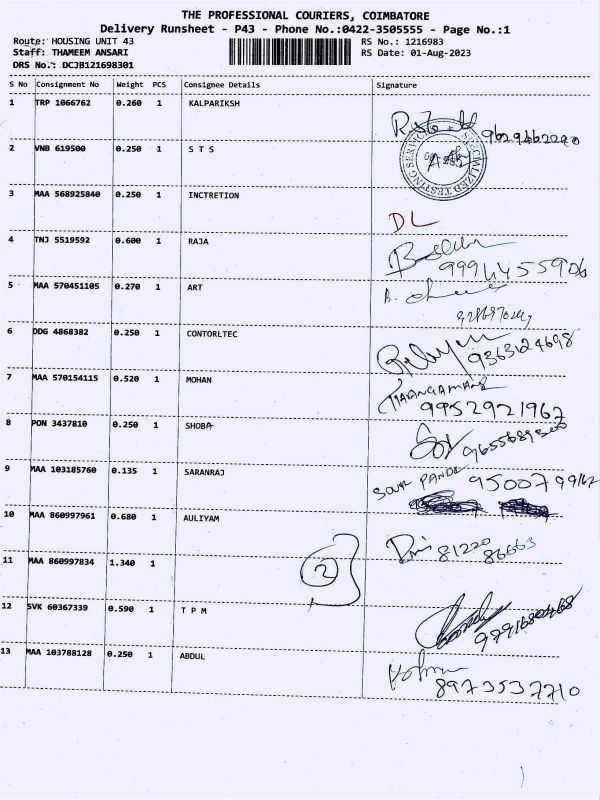 THE PROFESSIONAL COURIERS, COIMBATORE
Delivery Runsheet - P43 - Phone No.:0422-3505555 - Page No.:1
Route: HOUSING UNIT 43 RS No.: 1216983
Staff: THAMEEM ANSARI RS Date: 01-Aug-2023
DRS No.: DCJB121698301
S No Consignment No Weight PCS Consignee Details Signature
1 TRP 1066762 0.260 1 KALPARIKSH
2 VNB 619500 0.250 1 S T S
SPECIALIZED TESTING SERVICE
3 MAA 568925840 0.250 1 INCTRETION DL
4 TNJ 5519592 0.600 1 RAJA
5 MAA 570451105 0.270 1 ART
6 DDG 4868382 0.250 1 CONTORLTEC
9363124698
7 MAA 570154115 0.520 1 MOHAN
9952921967
8 PON 3437810 0.250 1 SHOBA
9 MAA 103185760 0.135 1 SARANRAJ
9500799167
10 MAA 860997961 0.680 1 AULIYAM
81220
86663
11 MAA 860997834 1.340 1 2
12 SVK 60367339 0.590 1 T P M
9791680468
13 MAA 103788128 0.250 1 ABDUL
8973537710